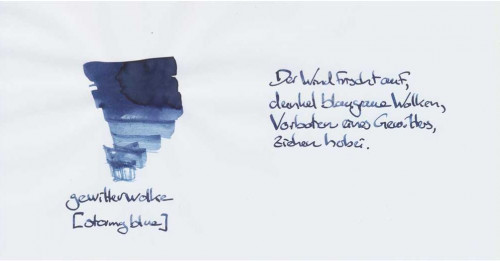 Der Wind frischt auf,
dunkel blaugraue Wolken,
Vorboten eines Gewitters,
ziehen hobei.
gewitterwolke
[stormy blue]